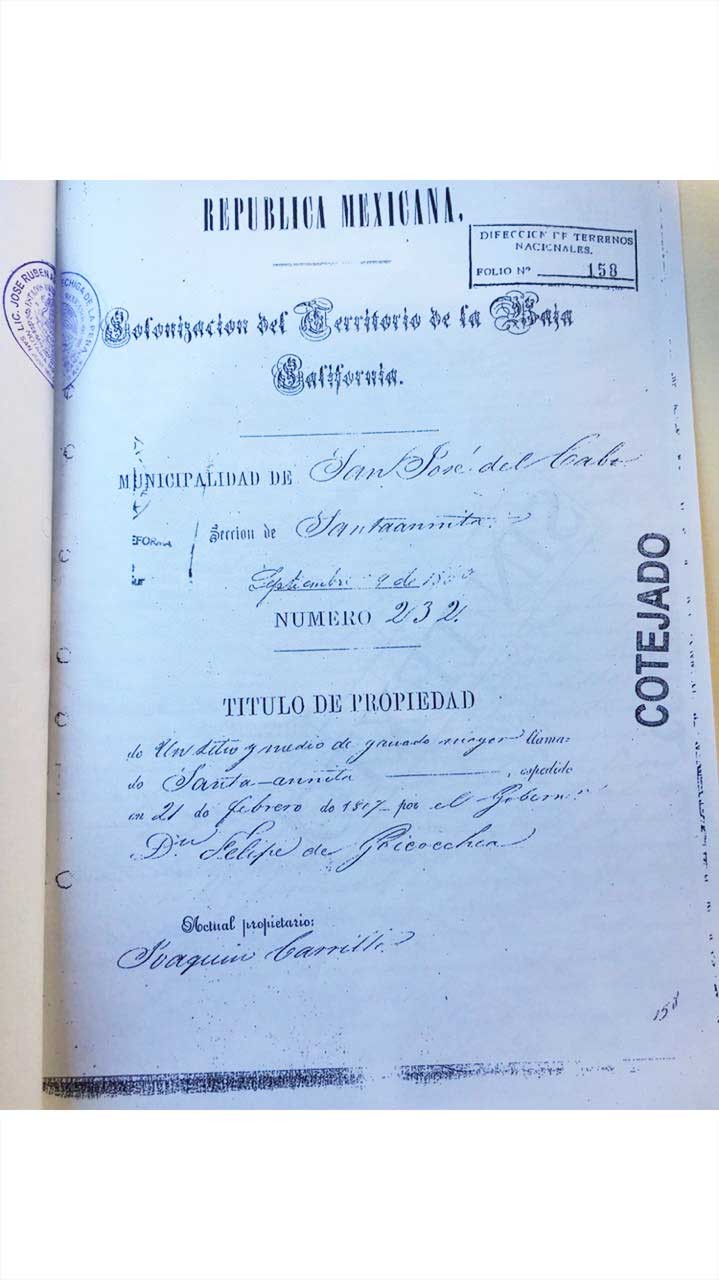 REPUBLICA MEXICANA.
DIRECCION DE TERRENOS
NACIONALES.
FOLIO Nº 158
LIC. JOSE RUBEN
ECHIGA DE LA PEÑA
Colonizacion del Territorio de la Baja
California.
MUNICIPALIDAD DE San José del Cabo
EFORMA
Seccion de Santaannita
Septiembre 9 de
NUMERO 232.
COTEJADO
TITULO DE PROPIEDAD
de Un sitio y medio de ganado mayor llama-
do Santa-annita, espedido
en 21 de febrero de 1817 por el Gobern
Dn Felipe de Goicoechea
Actual propietario:
Joaquin Carrillo
158